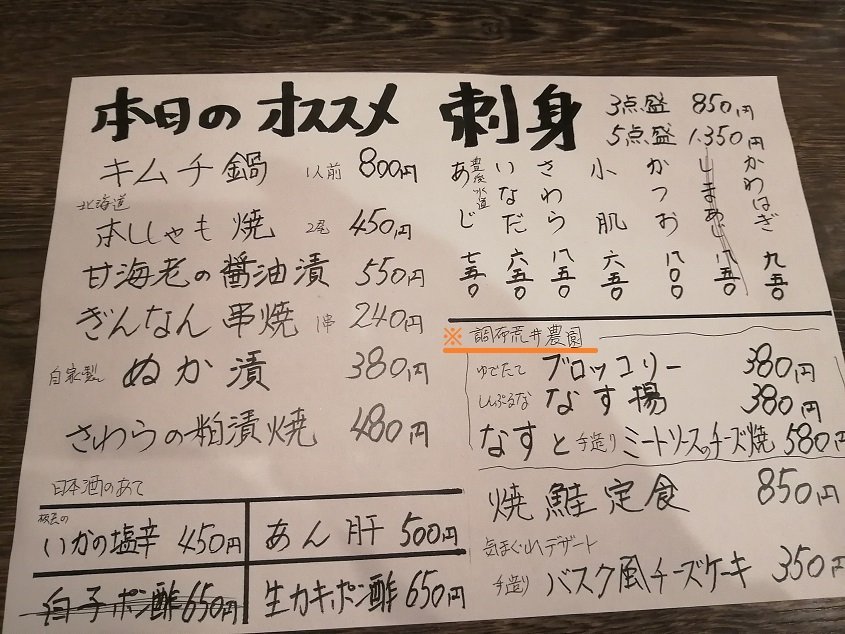 本日のオススメ
キムチ鍋 1人前 800円
北海道
本ししゃも焼 2尾 450円
甘海老の醤油漬 550円
ぎんなん串焼 1串 240円
自家製 ぬか漬 380円
さわらの粕漬焼 480円
日本酒のあて
板長の
いかの塩辛 450円
あん肝 500円
白子ポン酢 650円
生カキポン酢 650円
刺身
3点盛 850円
5点盛 1.350円
かわはぎ 九五〇
しまあじ 八五〇
かつお 八〇〇
小肌 六五〇
さわら 八五〇
いなだ 六五〇
豊後水道
あじ 七五〇
※ 調布荒井農園
ゆでたて ブロッコリー 380円
しんぷるな なす揚 380円
なすと手造りミートソースのチーズ焼 580円
焼鮭定食 850円
気まぐれデザート
手造り バスク風チーズケーキ 350円